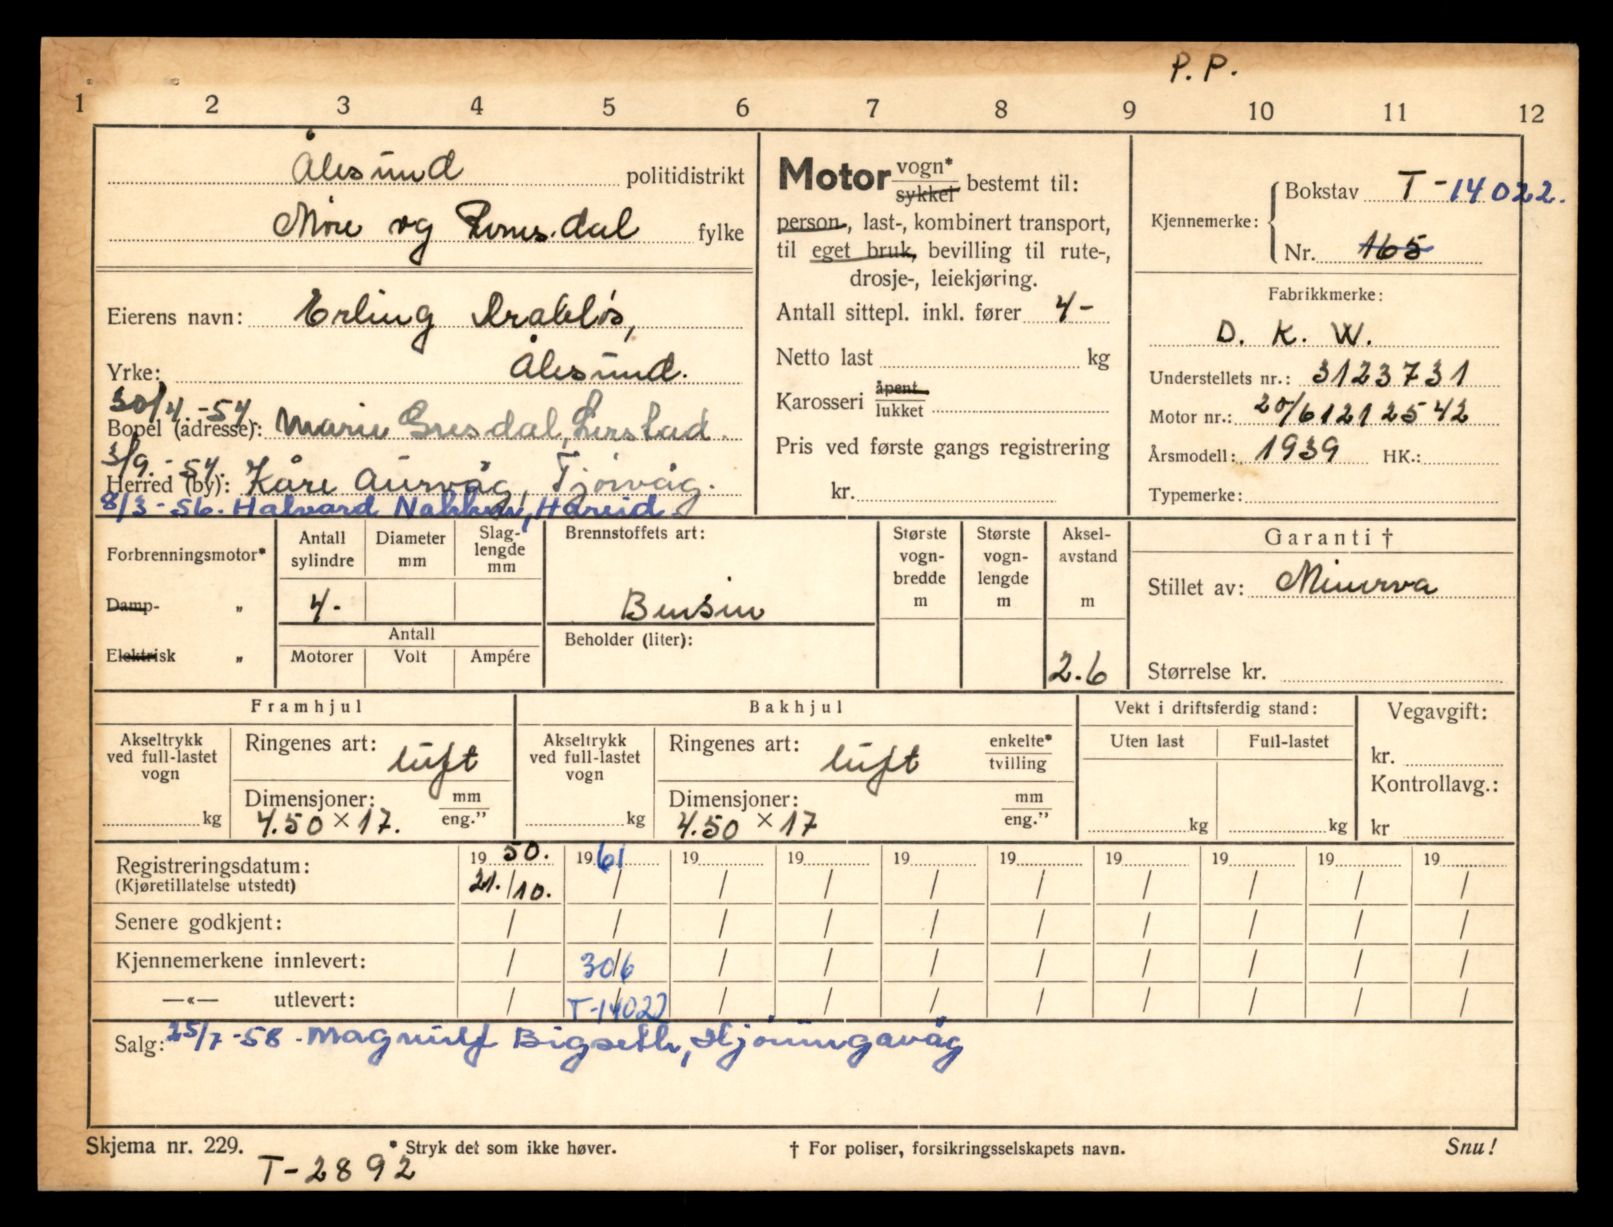 P. P.
1 2 3 4 5 6 7 8 9 10 11 12
Ålesund politidistrikt
Møre og Romsdal fylke
Eierens navn: Erling Drabløs,
Yrke: Ålesund.
30/4.-54.
Bopel (adresse): Marie Gresdal, Lerstad
3/9.-54.
Herred (by): Kåre Aurvåg, Tjørvåg.
8/3-56. Halvard Nakken, Hareid
Motor vogn*
sykkel bestemt til:
person, last-, kombinert transport,
til eget bruk, bevilling til rute-,
drosje-, leiekjøring.
Antall sittepl. inkl. fører 4-
Netto last kg
Karosseri åpent
lukket
Pris ved første gangs registrering
kr.
Kjennemerke: Bokstav T-14022.
Nr. 165
Fabrikkmerke:
D. K. W.
Understellets nr.: 3123731
Motor nr.: 20/61212542
Årsmodell: 1939 HK.:
Typemerke:
Forbrenningsmotor*
Damp- „
Elektrisk „
Antall sylindre
Diameter mm
Slag-lengde mm
4.
Antall
Motorer Volt Ampére
Brennstoffets art:
Bensin
Beholder (liter):
Største vogn-bredde m
Største vogn-lengde m
Aksel-avstand m
2.6
Garanti †
Stillet av: Minerva
Størrelse kr.
Framhjul
Akseltrykk ved full-lastet vogn
kg
Ringenes art: luft
Dimensjoner: mm
4.50 × 17. eng.”
Bakhjul
Akseltrykk ved full-lastet vogn
kg
Ringenes art: luft enkelte*
tvilling
Dimensjoner: mm
4.50 × 17 eng.”
Vekt i driftsferdig stand:
Uten last Full-lastet
kg kg
Vegavgift:
kr.
Kontrollavg.:
kr
Registreringsdatum: 19 50. 19 61 19 19 19 19 19 19 19 19
(Kjøretillatelse utstedt) 21./10. / / / / / / / / /
Senere godkjent: / / / / / / / / / /
Kjennemerkene innlevert: / 30/6 / / / / / / / /
—«— utlevert: / T-14022 / / / / / / / /
Salg: 25/7-58. Magnulf Bigseth, Hjørungavåg
Skjema nr. 229. * Stryk det som ikke høver. † For poliser, forsikringsselskapets navn. Snu!
T-2892